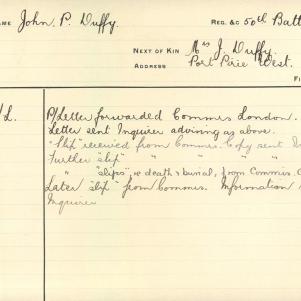 NAME John P. Duffy. REG. &c 50th Batt
NEXT OF KIN Mrs J. Duffy.
ADDRESS Port Pirie West.
P/Letter forwarded Commrs London.
Letter sent Inquirer advising as above.
"Slip" received from Commrs. Copy sent
Further "slip" " " "
" "slips" re death & burial, from Commrs.
Later "slip" from Commrs. Information
Inquirer